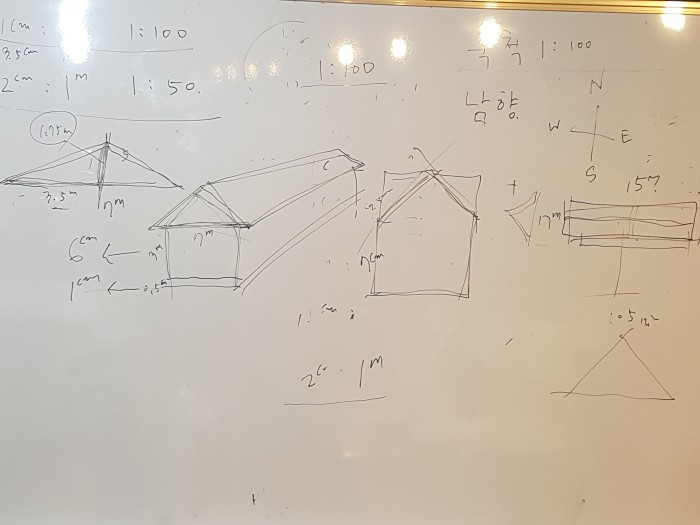 1cm : 1:100
3.5cm
2cm : 1m 1:50.
1:100
축척 1:100
남향
N
W E
S
1.75m
3.5m
7m
7m
6cm ← 3m
1cm ← 0.5m
7cm
+
7m
15?
105m²
2cm . 1m